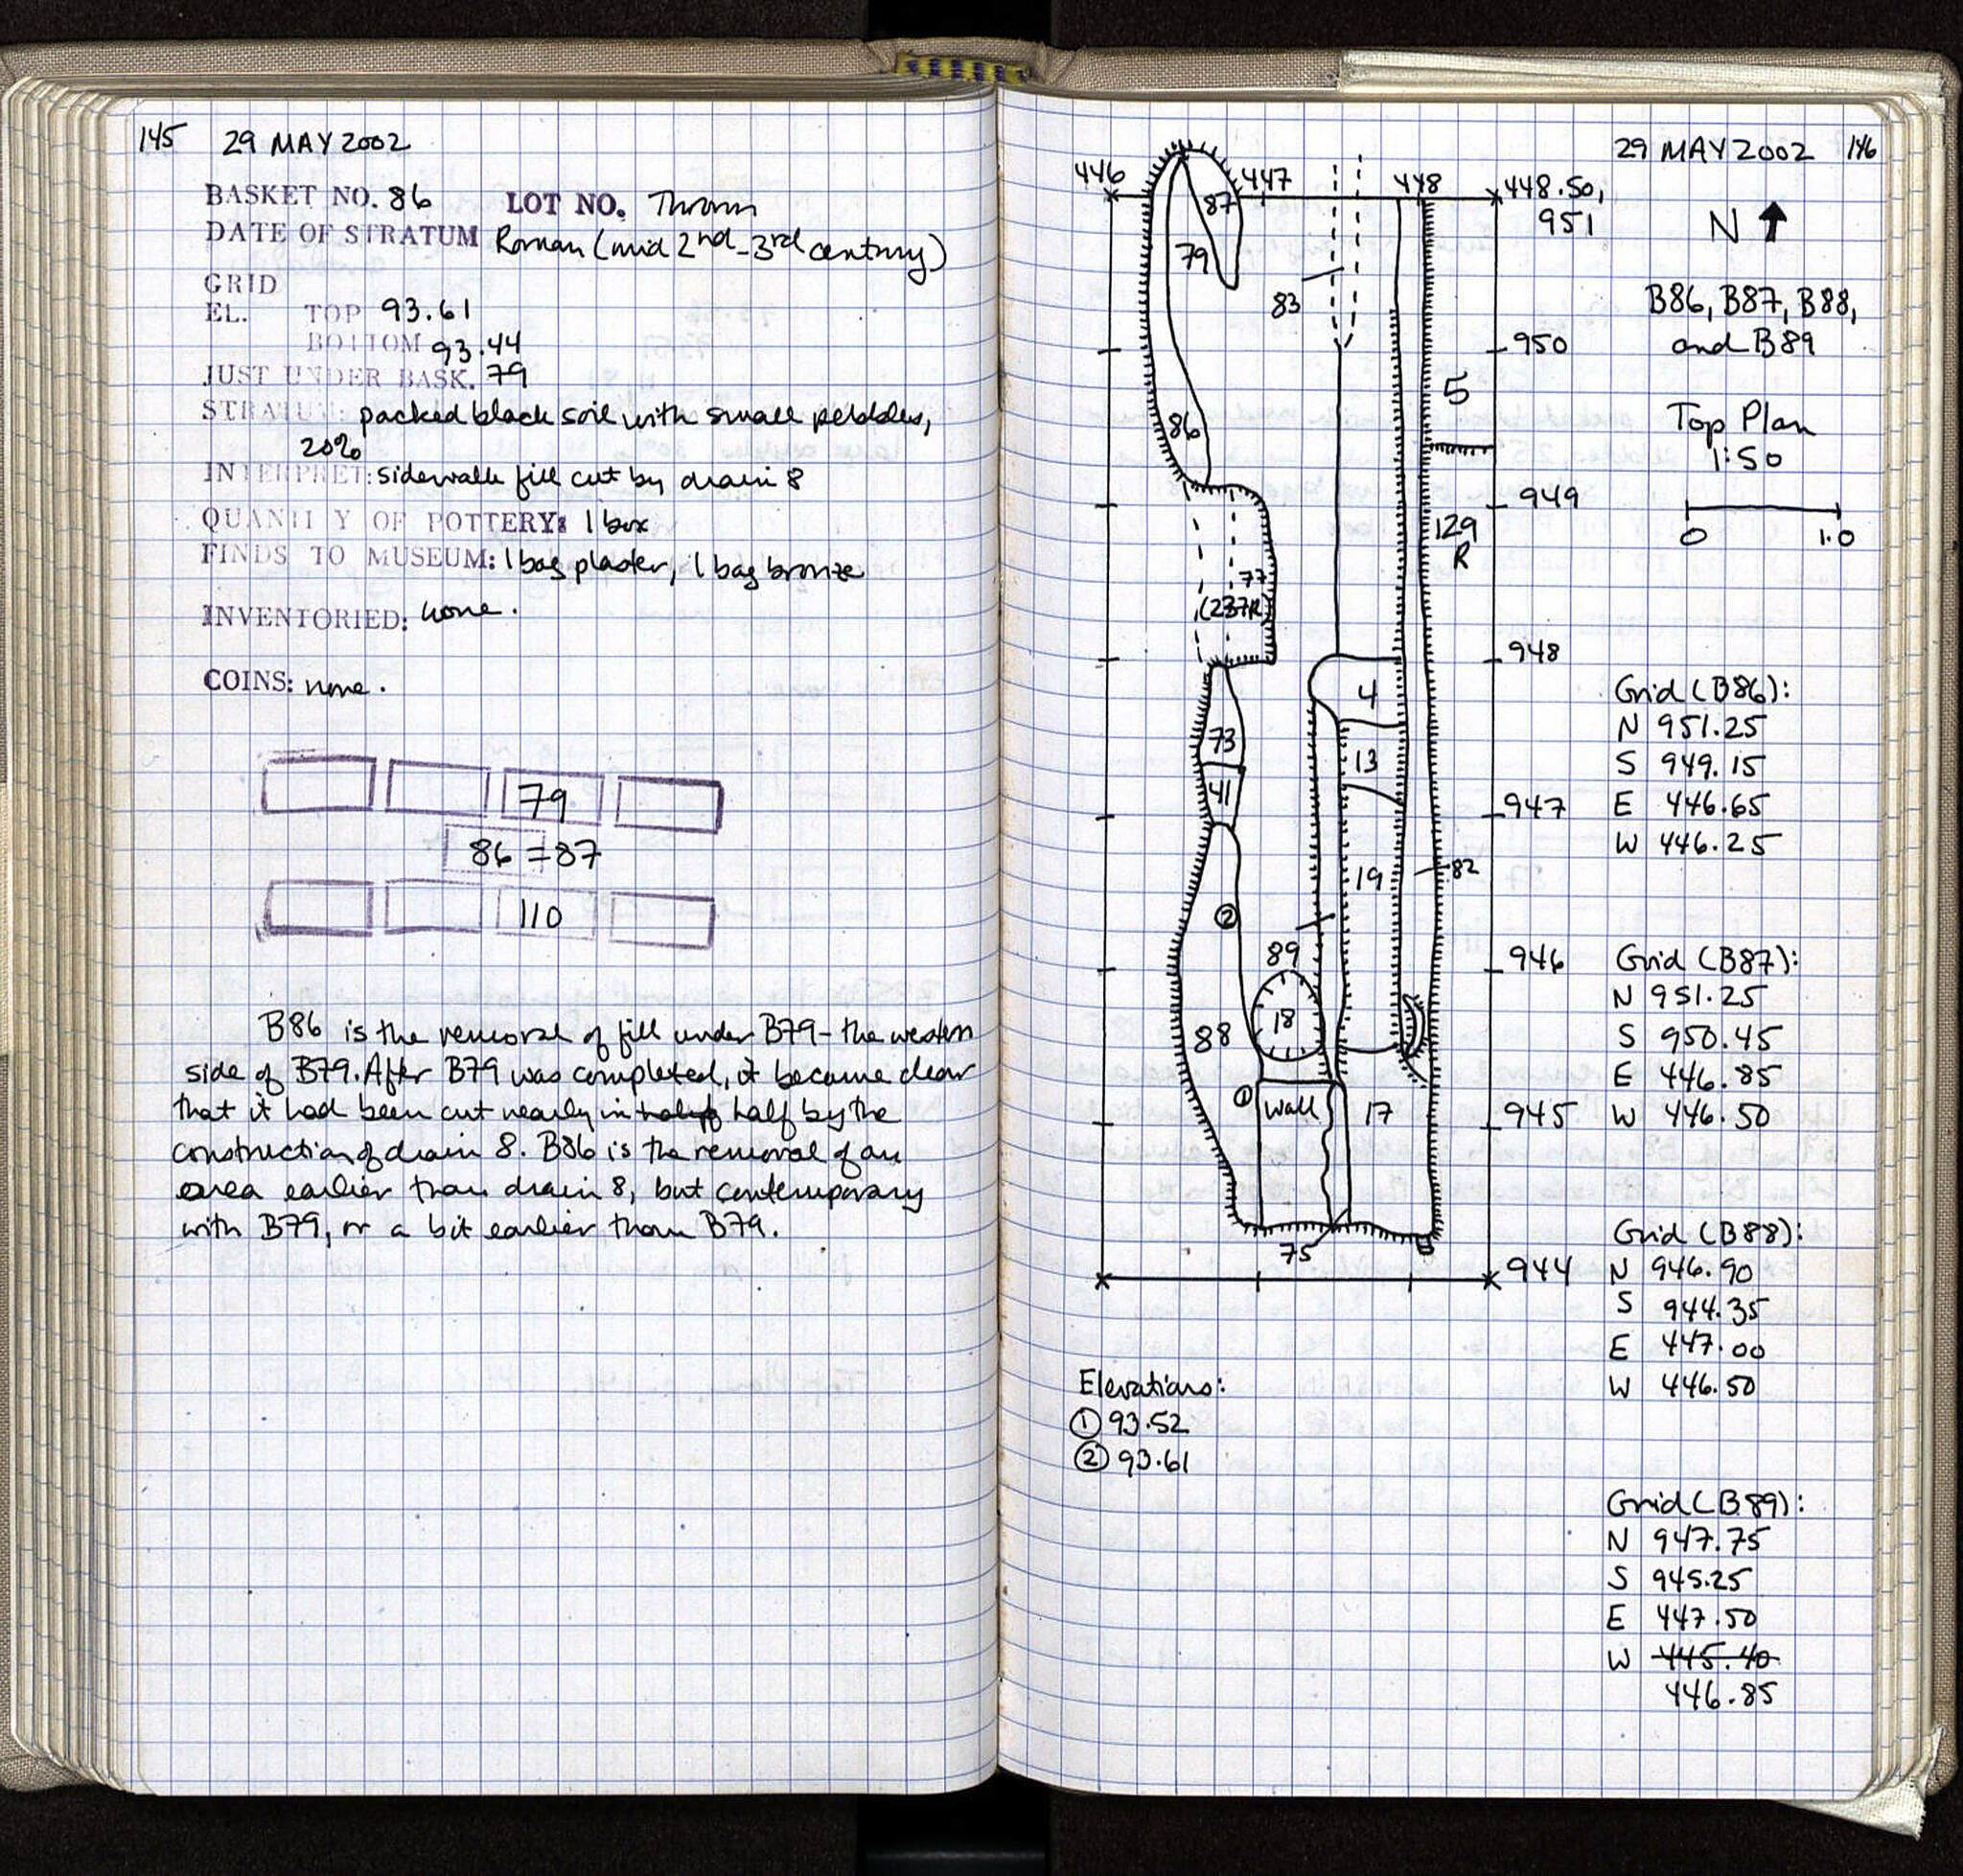 145 29 MAY 2002
BASKET NO. 86 LOT NO. Thrown
DATE OF STRATUM Roman (mid 2nd-3rd century)
GRID
EL. TOP 93.61
BOTTOM 93.44
JUST UNDER BASK. 79
STRATUM: packed black soil with small pebbles,
20%
INTERPRET: sidewalk fill cut by drain 8
QUANTITY OF POTTERY: 1 box
FINDS TO MUSEUM: 1 bag plaster, 1 bag bronze
INVENTORIED: none.
COINS: none.
79
86 = 87
110
B86 is the removal of fill under B79 - the western
side of B79. After B79 was completed, it became clear
that it had been cut nearly in half by the
construction of drain 8. B86 is the removal of an
area earlier than drain 8, but contemporary
with B79, or a bit earlier than B79.
29 MAY 2002 146
446 447 448 448.50,
951
N
87
79
83
B86, B87, B88,
and B89
950
5
Top Plan
1:50
86
949
129
R
0 1.0
77
(237R)
948
4
73
13
41
947
19
82
2
89
946
18
88
1
Wall
17
945
75
8
944
Grid (B86):
N 951.25
S 949.15
E 446.65
W 446.25
Grid (B87):
N 951.25
S 950.45
E 446.85
W 446.50
Grid (B88):
N 946.90
S 944.35
E 447.00
W 446.50
Elevations:
① 93.52
② 93.61
Grid (B89):
N 947.75
S 945.25
E 447.50
W 445.40
446.85